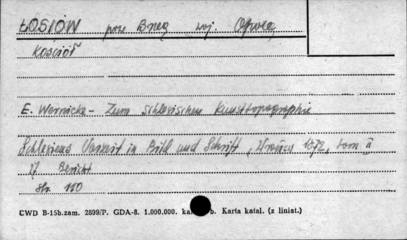 ŁOSIÓW pow Brzeg woj. Opole
Kościół
E. Wernicke - Zum schlesischen Kunsttopographie
Schlesiens Vorzeit in Bild und Schrift, 1872, tom II
17 Bericht
str. 110
CWD B-15b.zam. 2899/P. GDA-8. 1.000.000. Karta katal. (z liniat.)